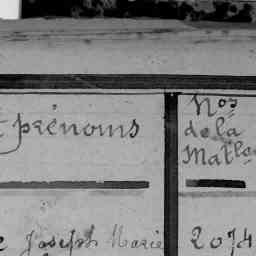 prénoms
Nos
de la
Matle
Joseph Marie 2074